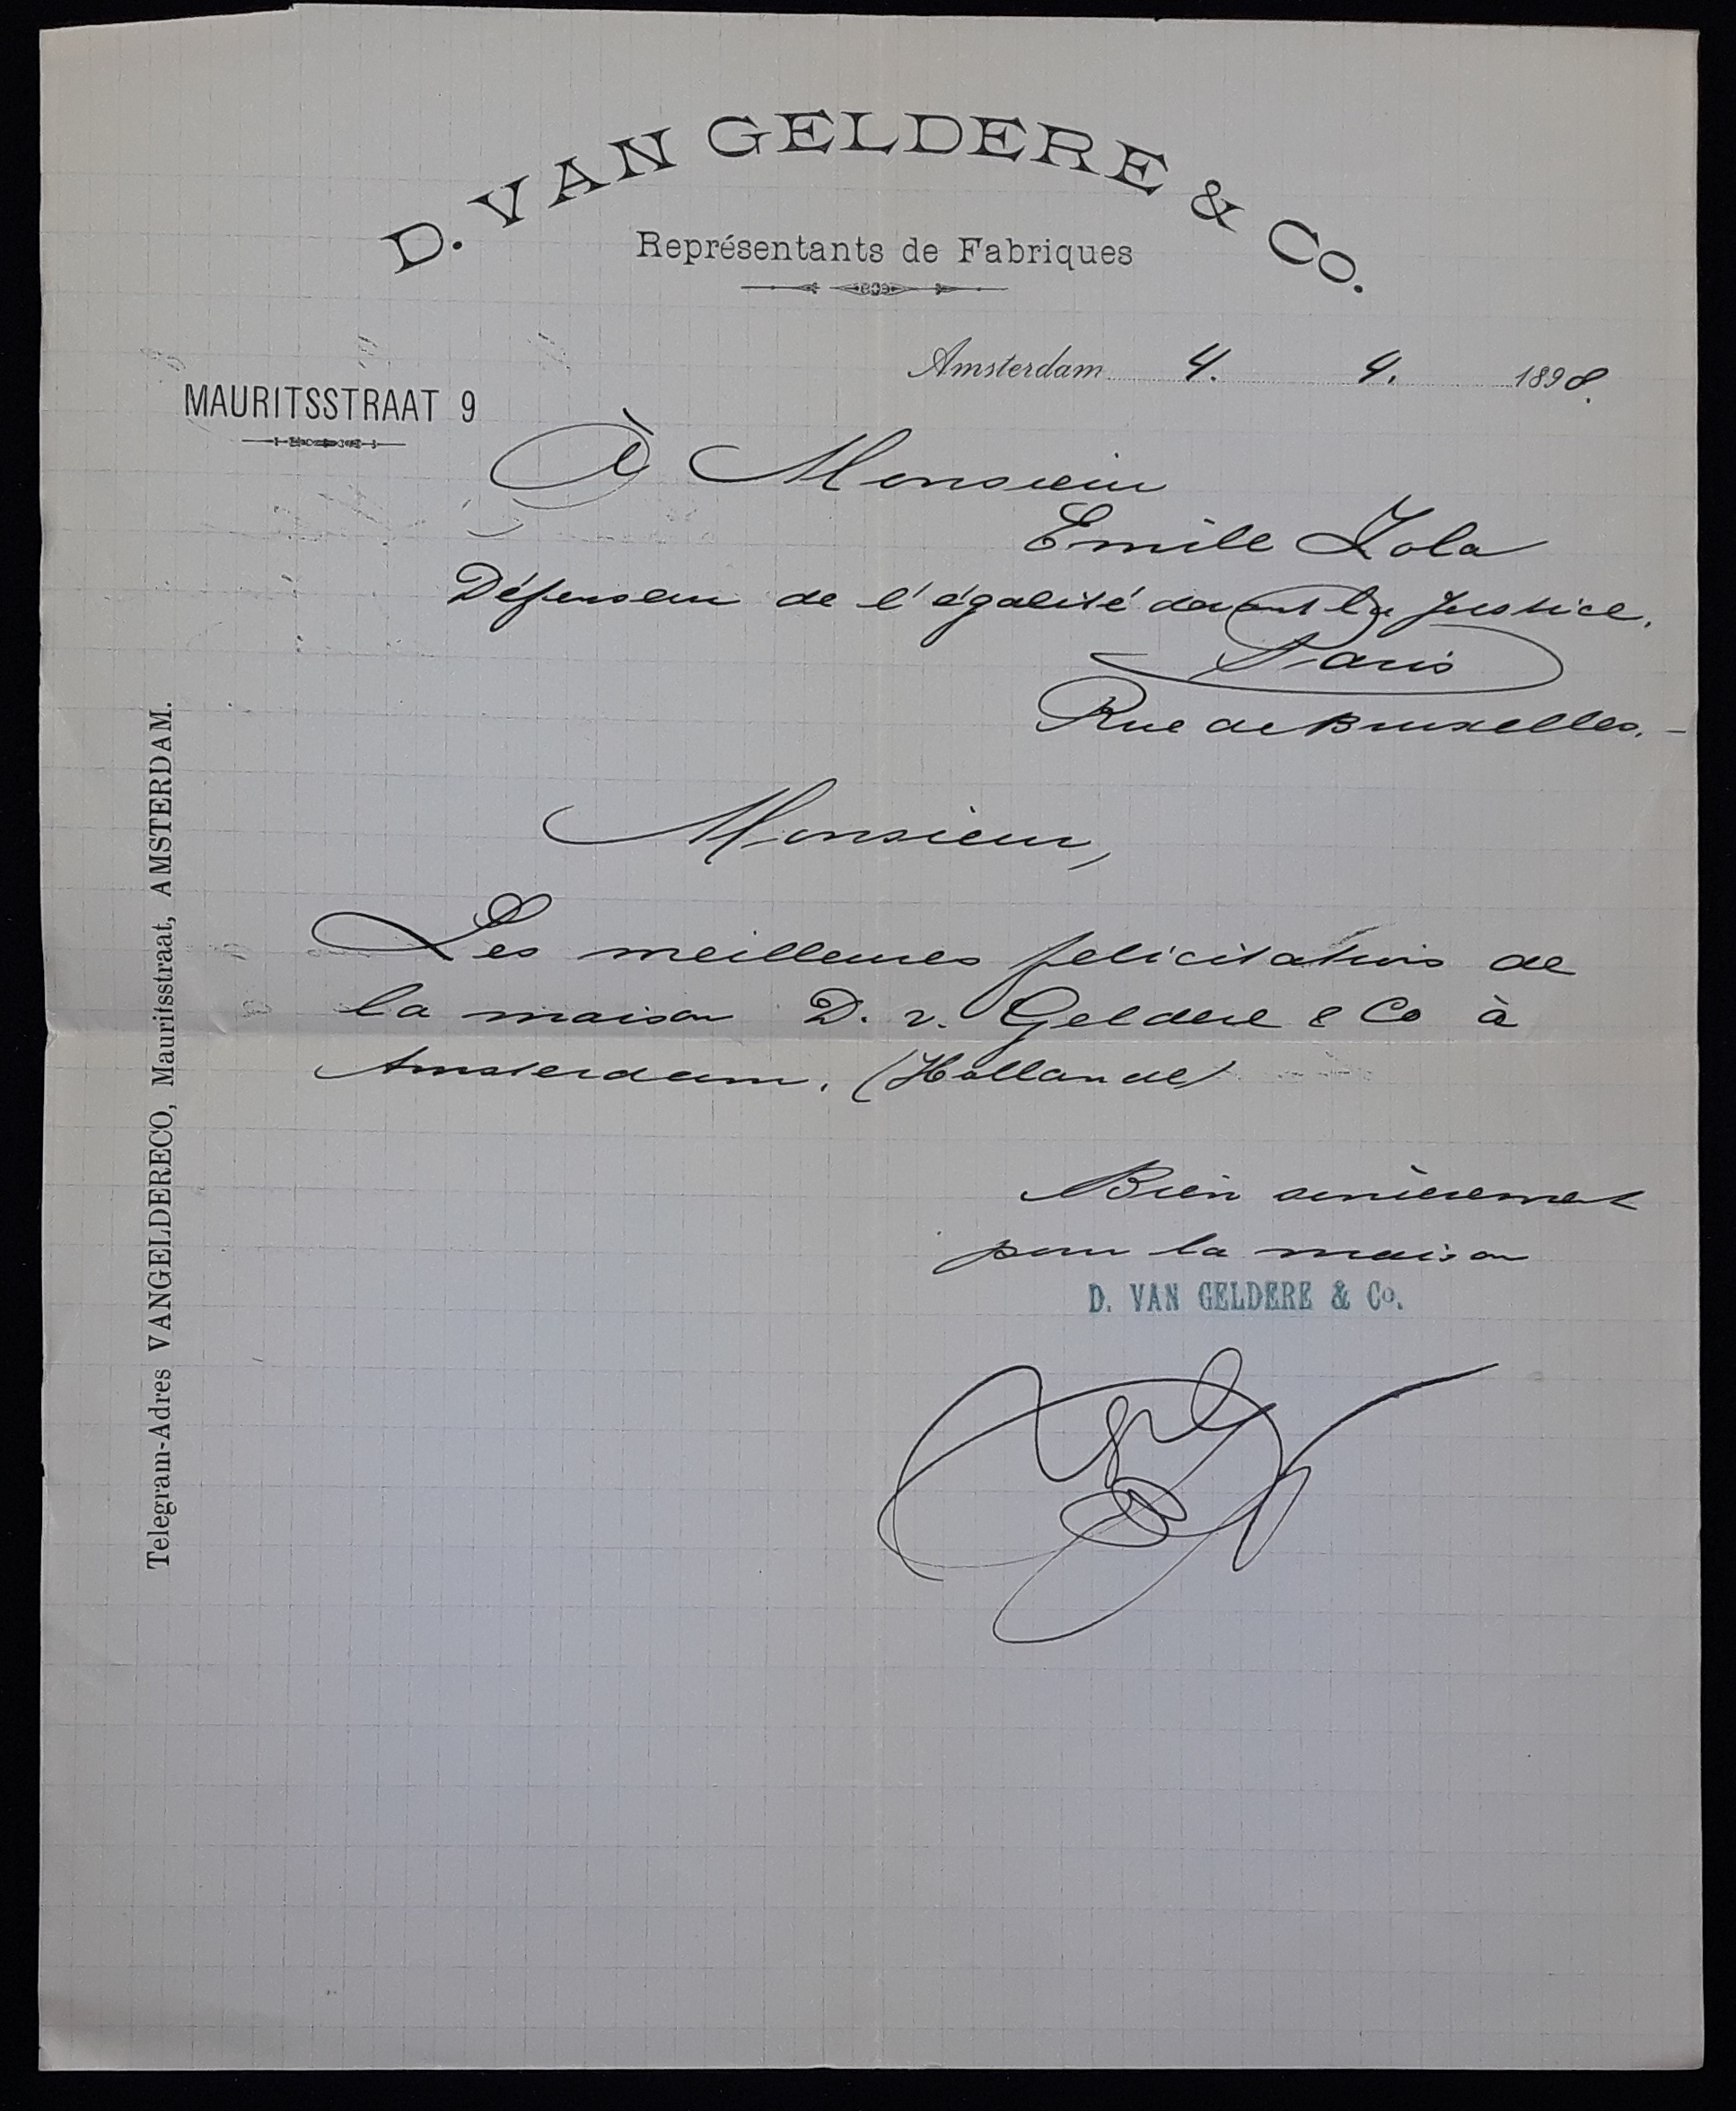 D. VAN GELDERE & Co.
Représentants de Fabriques
Amsterdam 4. 4. 1898.
MAURITSSTRAAT 9
À Monsieur
Emile Zola
Défenseur de l'égalité devant la Justice.
Paris
Rue de Bruxelles. -
Monsieur,
Les meilleures felicitations de
la maison D. v. Geldere & Co à
Amsterdam. (Hollande)
Bien sincèrement
pour la maison
D. VAN GELDERE & Co.
Telegram-Adres VANGELDERECO, Mauritsstraat, AMSTERDAM.